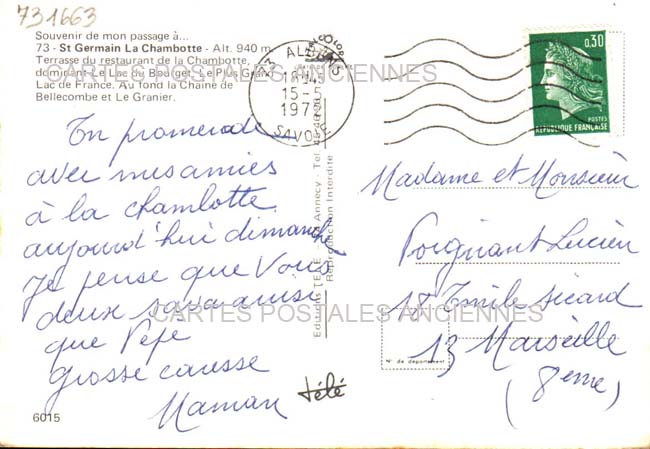 731663
Souvenir de mon passage à...
73 - St Germain La Chambotte - Alt. 940 m
Terrasse du restaurant de la Chambotte,
dominant Le Lac du Bourget, Le Plus Grand
Lac de France. Au fond la Chaîne de
Bellecombe et Le Granier.
CARTES POSTALES ANCIENNES
15-5
SAVOIE
0,30
POSTES
REPUBLIQUE FRANÇAISE
En promenade
avec mes amies
à la chambotte
aujourd'hui dimanche
Je pense que Vous
deux sava aussi
que Pépé
grosse caresse
Maman
6015
Editions TELE - Annecy - Tel.
Reproduction Interdite
télé
Madame et Monsieur
Poignant Lucien
Emile Sicard
13 Marseille
(8eme)
N° de département
CARTES POSTALES ANCIENNES